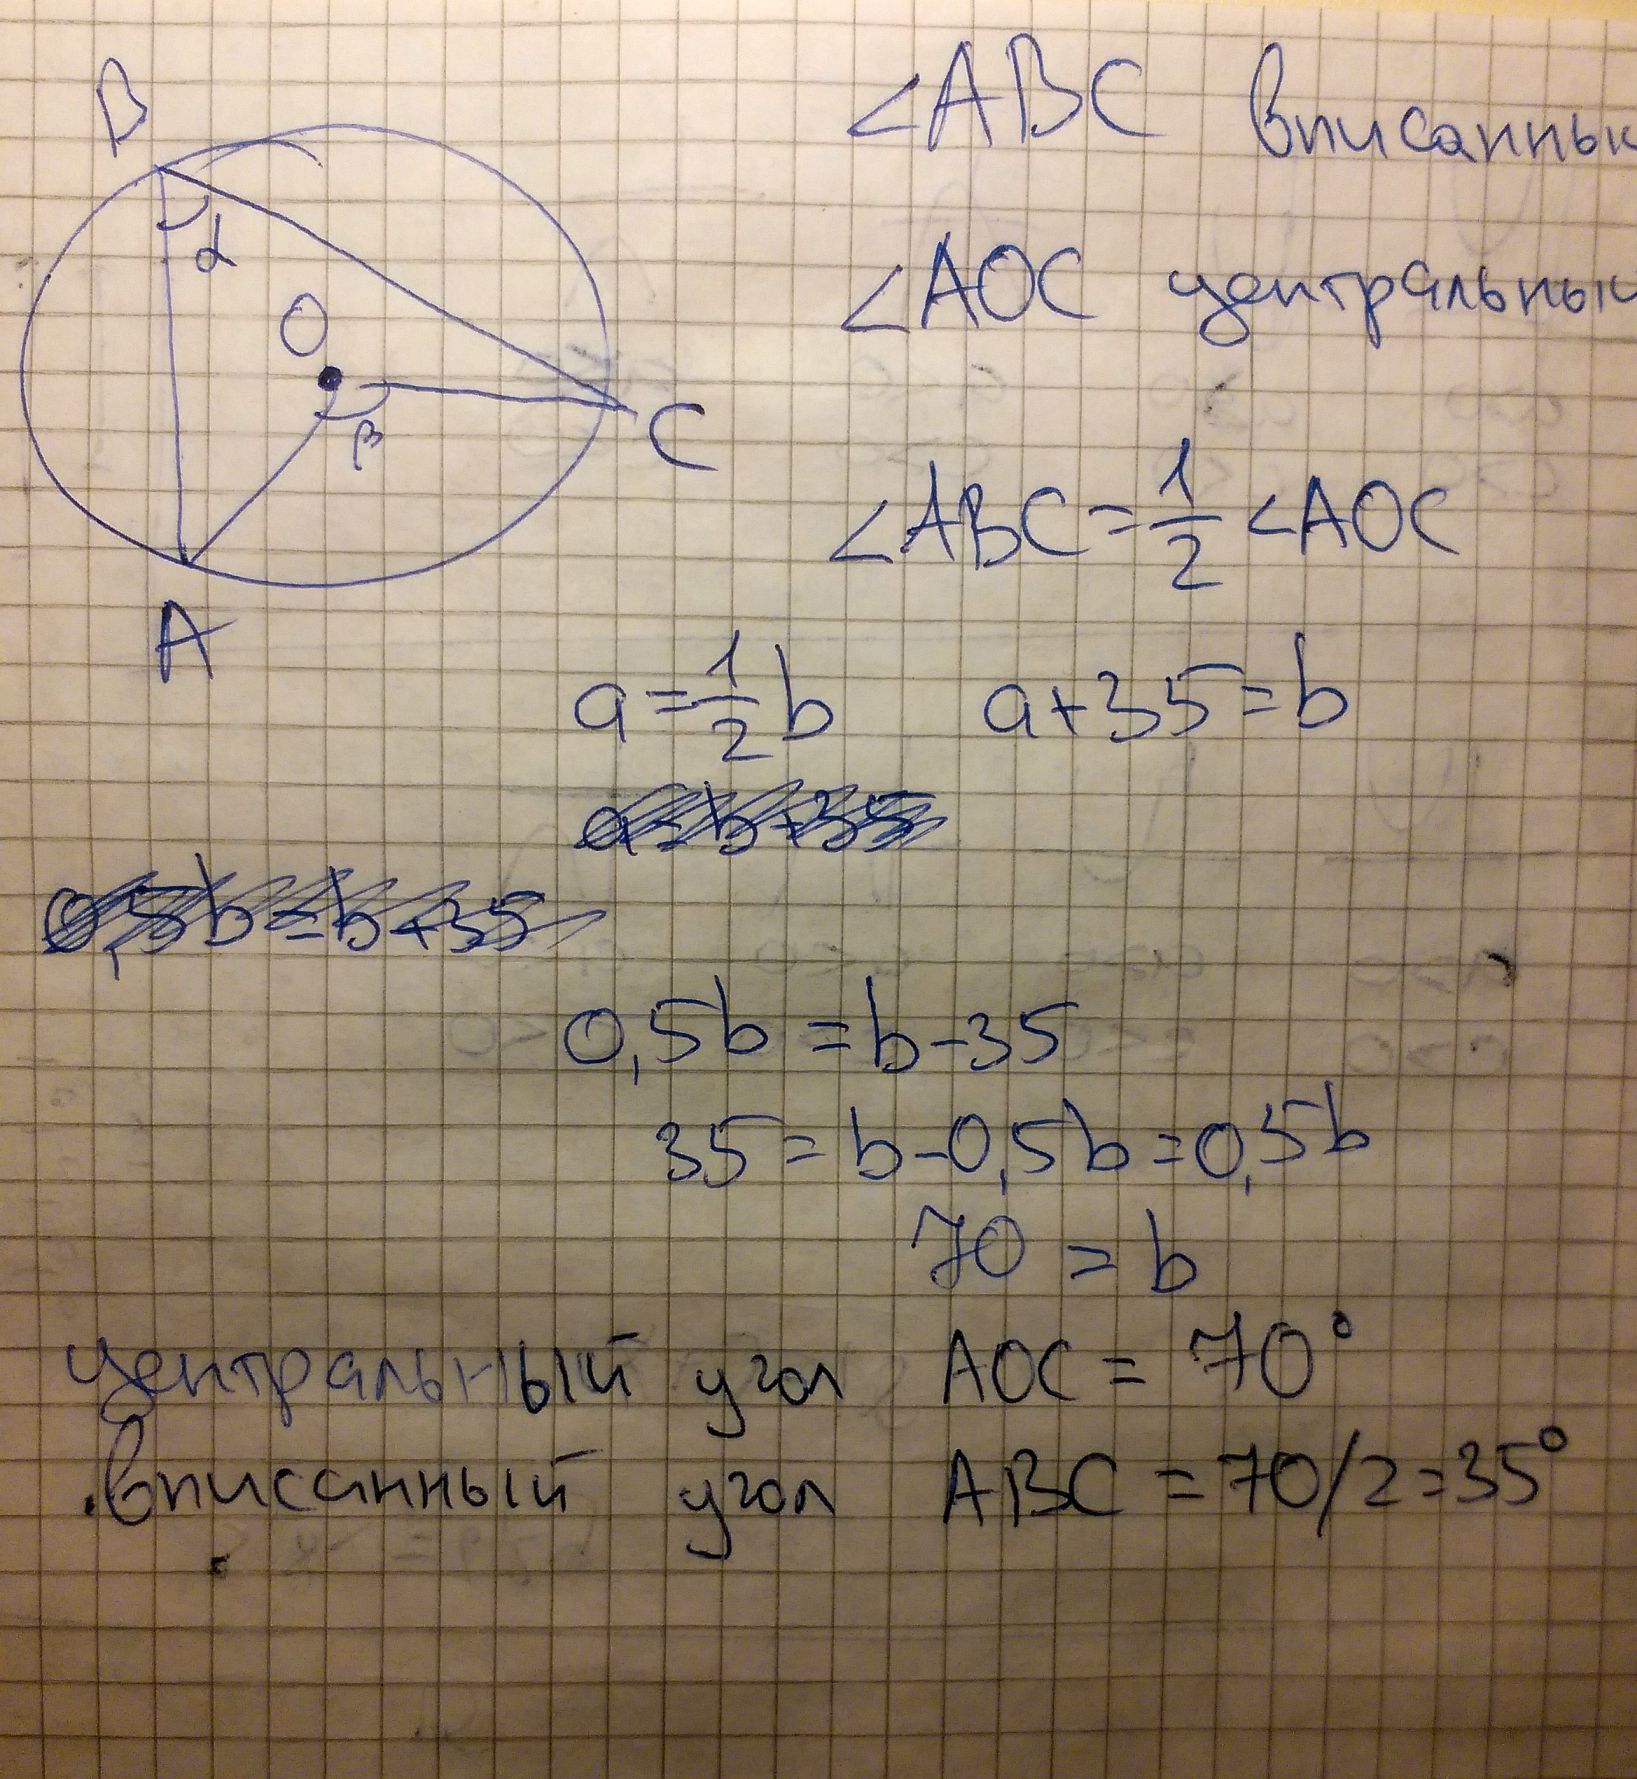 B
α
O
β
C
A
∠ABC вписанны
∠AOC центральный
∠ABC = 1/2 ∠AOC
a = 1/2 b a + 35 = b
0,5b = b + 35
0,5b = b - 35
35 = b - 0,5b = 0,5b
70 = b
центральный угол AOC = 70°
вписанный угол ABC = 70/2 = 35°